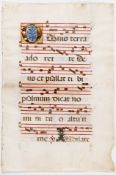 Omnis terra
ado ret te De
us et psallat ti bi
psalmum dicat no
mi ni tu o
me Iubilate